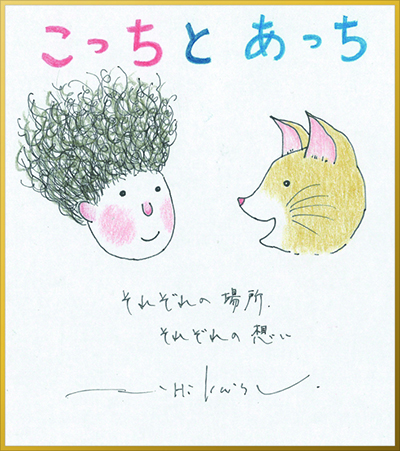 こっちとあっち
それぞれの場所.
それぞれの想い